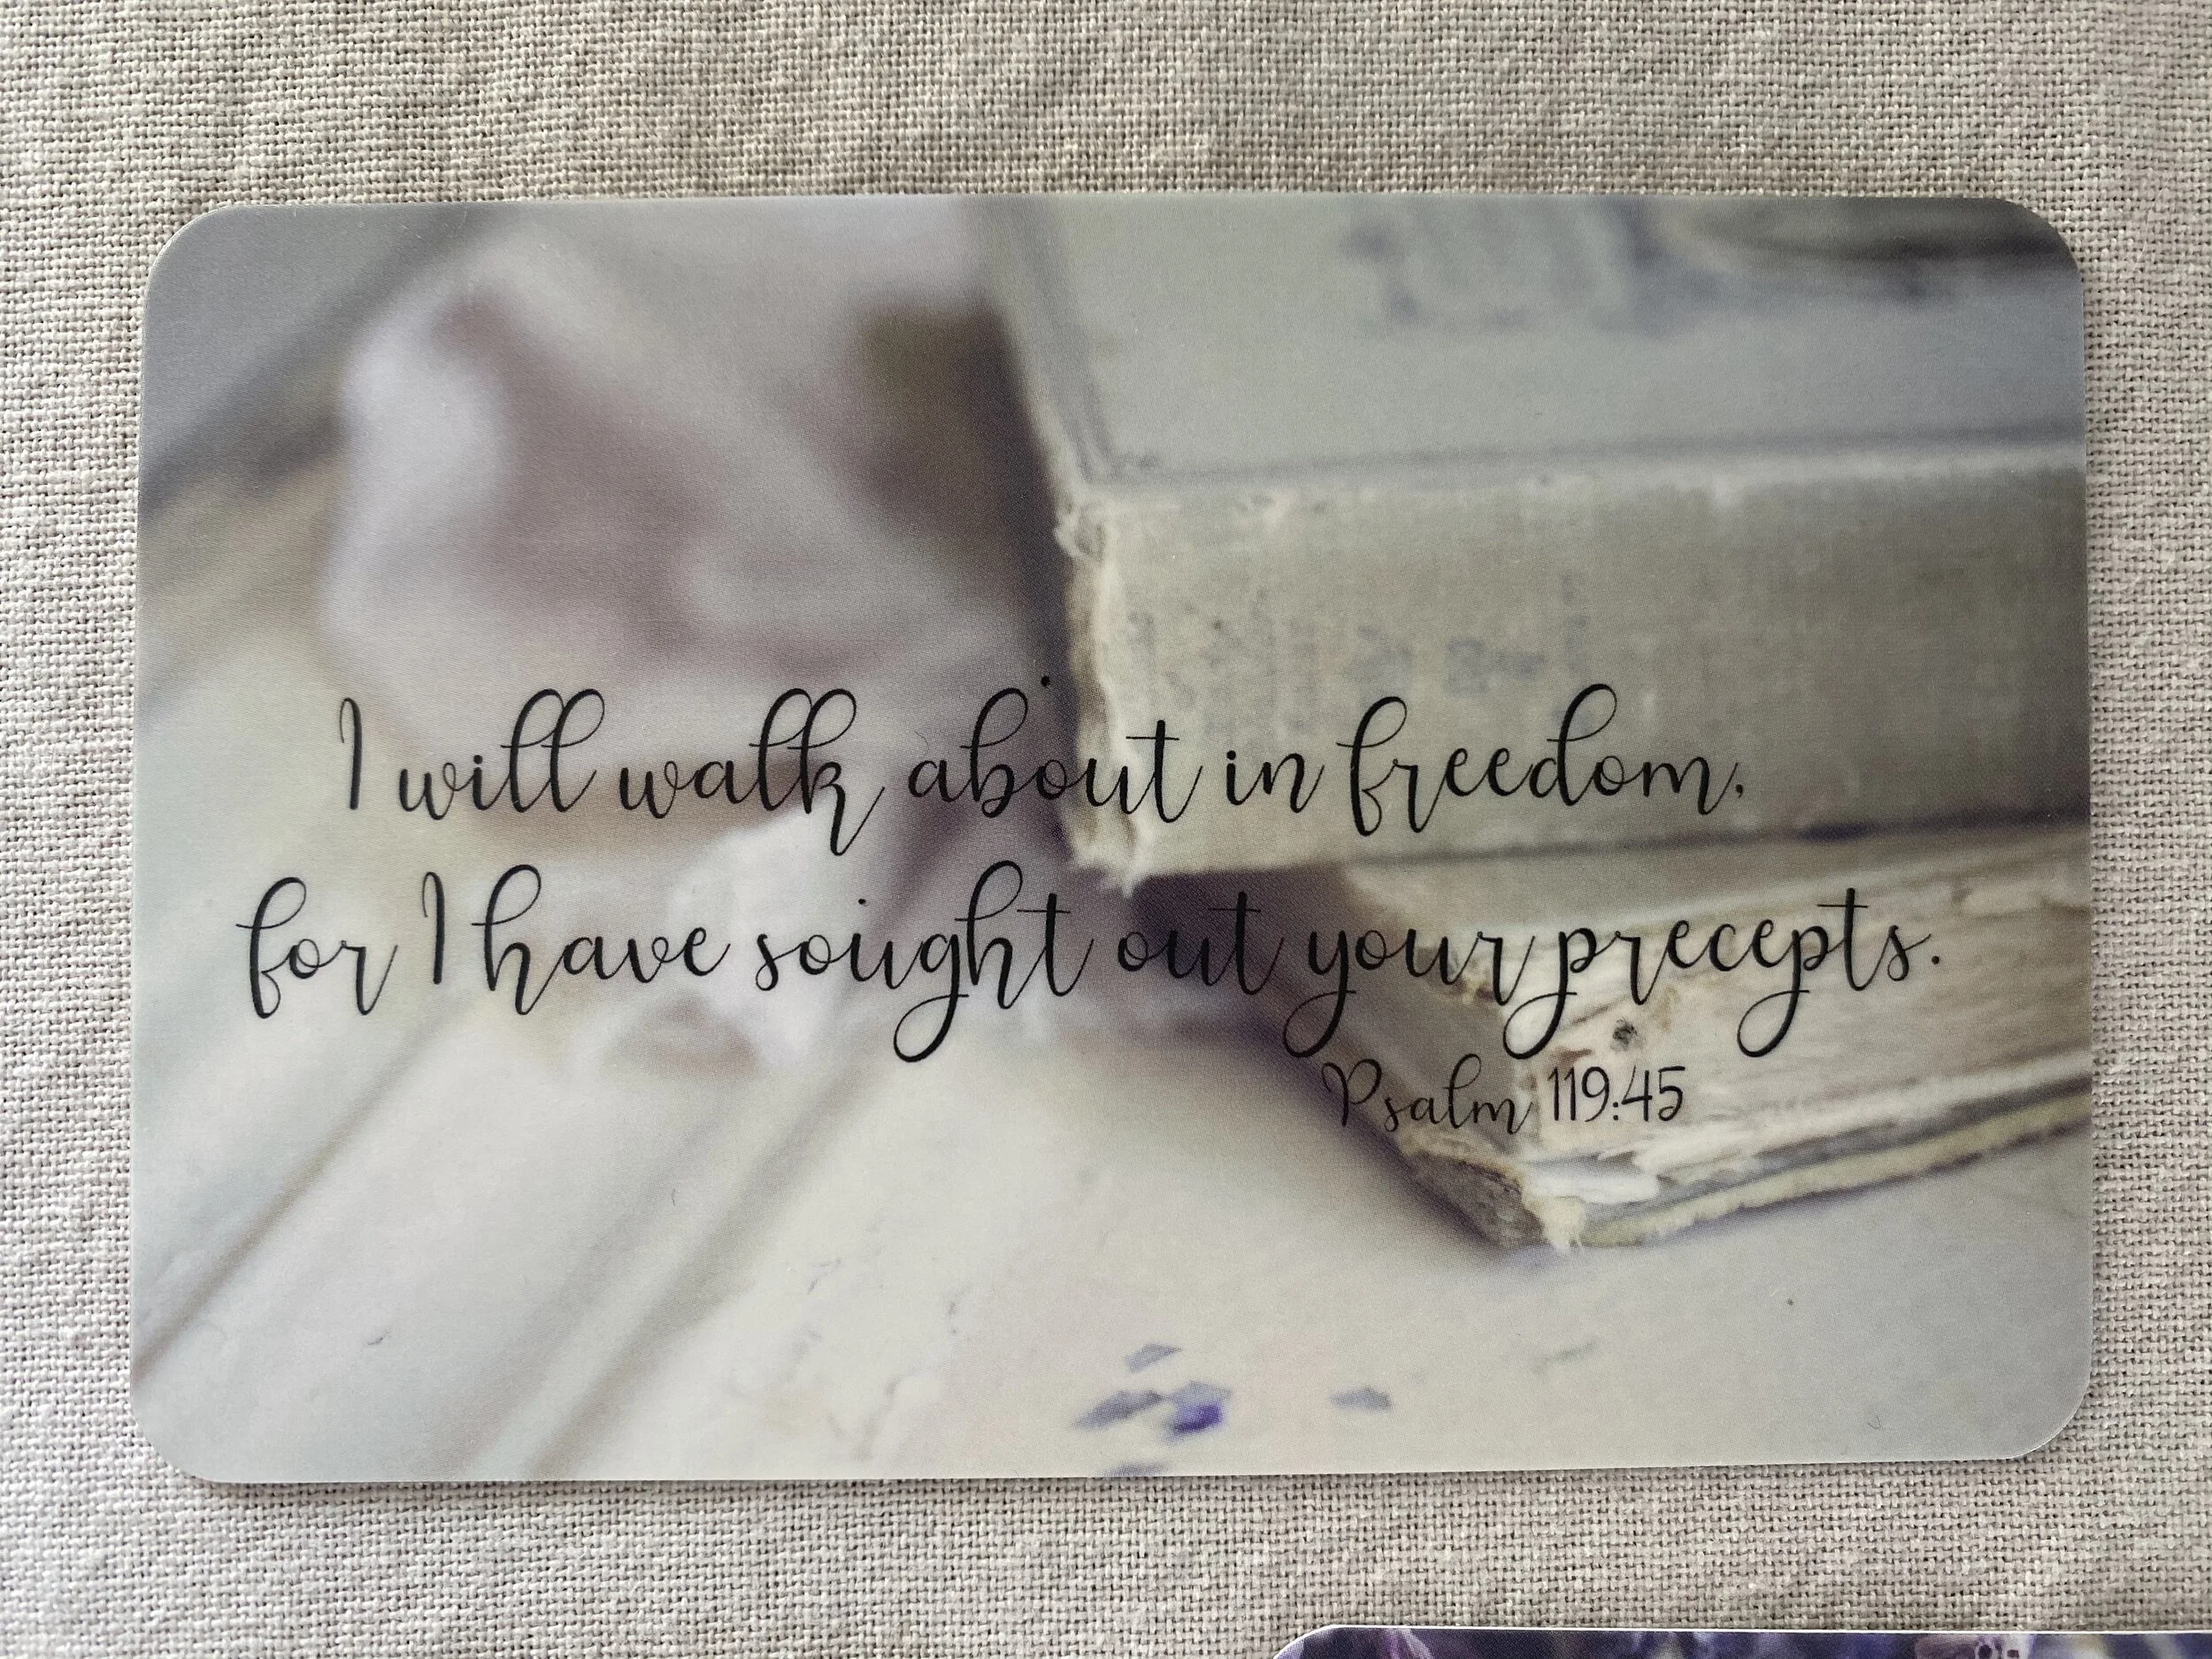 I will walk about in freedom,
for I have sought out your precepts.
Psalm 119:45